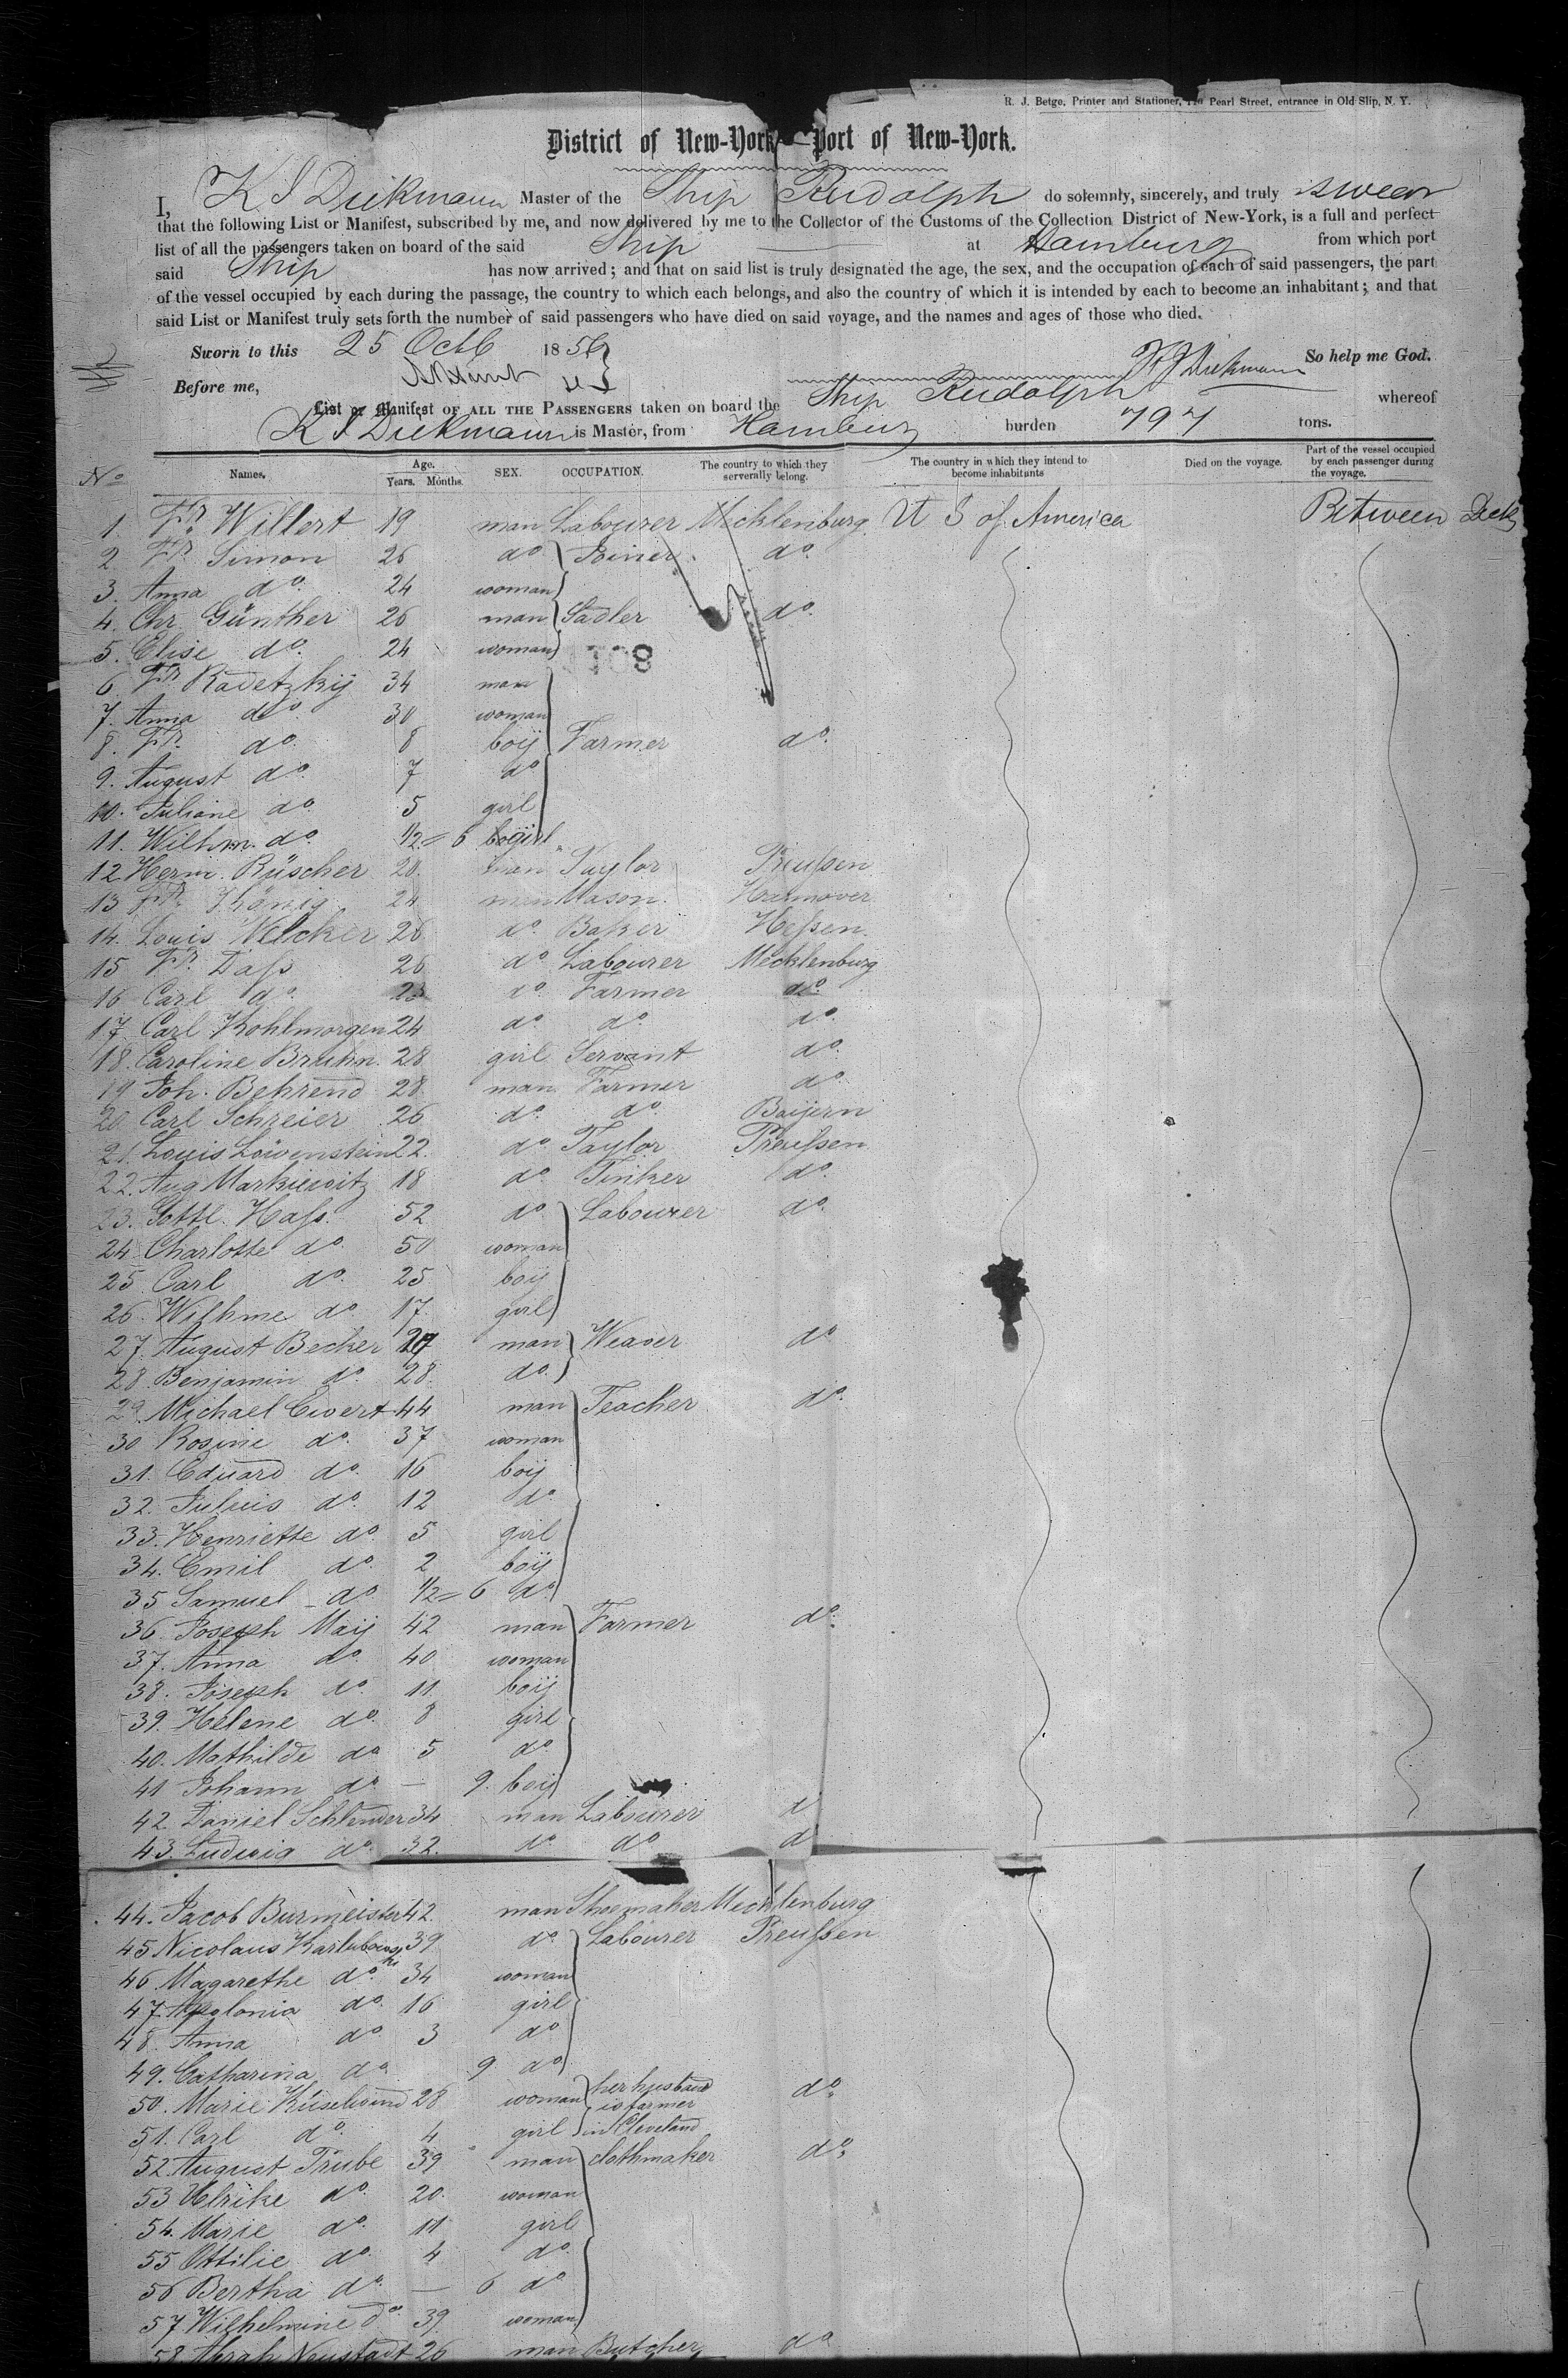 R. J. Betge, Printer and Stationer, Pearl Street, entrance in Old Slip, N. Y.
District of New-York—Port of New-York.
I, K J Diekmann Master of the Ship Rudolph do solemnly, sincerely, and truly swear
that the following List or Manifest, subscribed by me, and now delivered by me to the Collector of the Customs of the Collection District of New-York, is a full and perfect
list of all the passengers taken on board of the said Ship at Hamburg from which port
said Ship has now arrived; and that on said list is truly designated the age, the sex, and the occupation of each of said passengers, the part
of the vessel occupied by each during the passage, the country to which each belongs, and also the country of which it is intended by each to become an inhabitant; and that
said List or Manifest truly sets forth the number of said passengers who have died on said voyage, and the names and ages of those who died.
Sworn to this 25 Octb 1856
So help me God.
Before me, K J Diekmann
List or Manifest OF ALL THE PASSENGERS taken on board the Ship Rudolph whereof
K J Diekmann is Master, from Hamburg burden 797 tons.
No Names. Age. Years. Months. SEX. OCCUPATION. The country to which they serverally belong. The country in which they intend to become inhabitants Died on the voyage. Part of the vessel occupied by each passenger during the voyage.
1. Fr. Willert 19 man Labourer Mecklenburg U S of America Between Deck
2. Fr. Simon 26 do do
3. Anna do. 24 woman
4. Chr. Günther 26 man Sadler do.
5. Elise do. 24 woman
108
6 Fr. Radetzkÿ 34 man
7. Anna do. 30 woman
8. Fr. do. 8 boÿ Farmer do.
9. August do. 7 do
10. Juliane do. 5 girl
11. Wilhm. do. 1/2 = 6 girl
12 Herm. Rüscher 20. man Taylor Preußen
13 Fr. König 24 man Mason. Hannover
14. Louis Welcker 26 do. Baker Heßen.
15 Fr. Daß 26 do Labourer Mecklenburg
16 Carl do. do. Farmer do.
17 Carl Kohlmorgen 24 do. do. do.
18. Caroline Bruhn. 28 girl Servant do.
19 Joh. Behrend 28 man Farmer do.
20 Carl Schreier 26 do. do. Baÿern
21. Louis Löwenstein 22. do. Taylor Preußen
22. Aug Markiewitz 18 do. Tinker do.
23. Gottl. Haß. 52 do. Labourer do.
24 Charlotte do. 50 woman
25 Carl do. 25 boÿ
26. Wilhme do. 17. girl
27. August Becker man Weaver do
28. Benjamin do. 28. do.
29. Michael Ewert 44 man Teacher do.
30 Rosine do. 37 woman
31. Eduard do. 16 boÿ
32. Julius do. 12 do.
33. Henriette do. 5 girl
34. Emil do. 2 boÿ
35 Samuel do 1/2 = 6 do.
36. Joseph Maÿ 42 man Farmer do.
37. Anna do. 40 woman
38. Joseph do. 11. boÿ
39. Helene do. 8 girl
40. Mathilde do 5 do.
41 Johann do — 9. boÿ
42. Daniel Schlender 34 man Labourer d
43. Ludwig do. 32. do. do d
44. Jacob Burmeister 42. man Shoemaker Mecklenburg
45 Nicolaus 39 do. Labourer Preußen
46. Magarethe do. 34 woman
47. Apolonia do. 16 girl
48. Anna do. 3 do.
49. Catharina do. 9. do
50. Marie 28 woman her husband is farmer in Cleveland do.
51. Carl do. 4 girl
52. August Trube 39 man clothmaker do.
53 Ulrike do. 20. woman
54. Marie do. 11 girl
55 Ottilie do. 4 do.
56 Bertha do. — 6 do
57 Wilhelmine do. 39. woman
58. Abrah Neustadt 26 man Butcher do